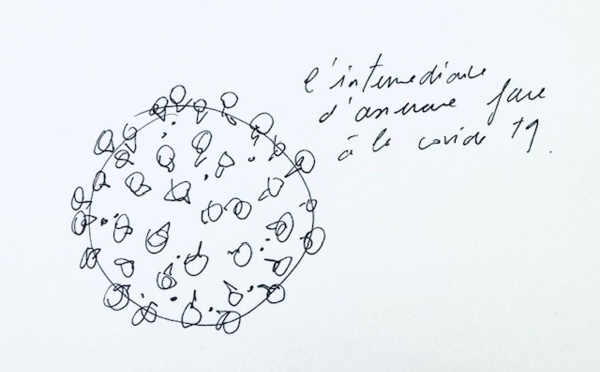 l'intermediaire
d'assurance face
à la covid 19.